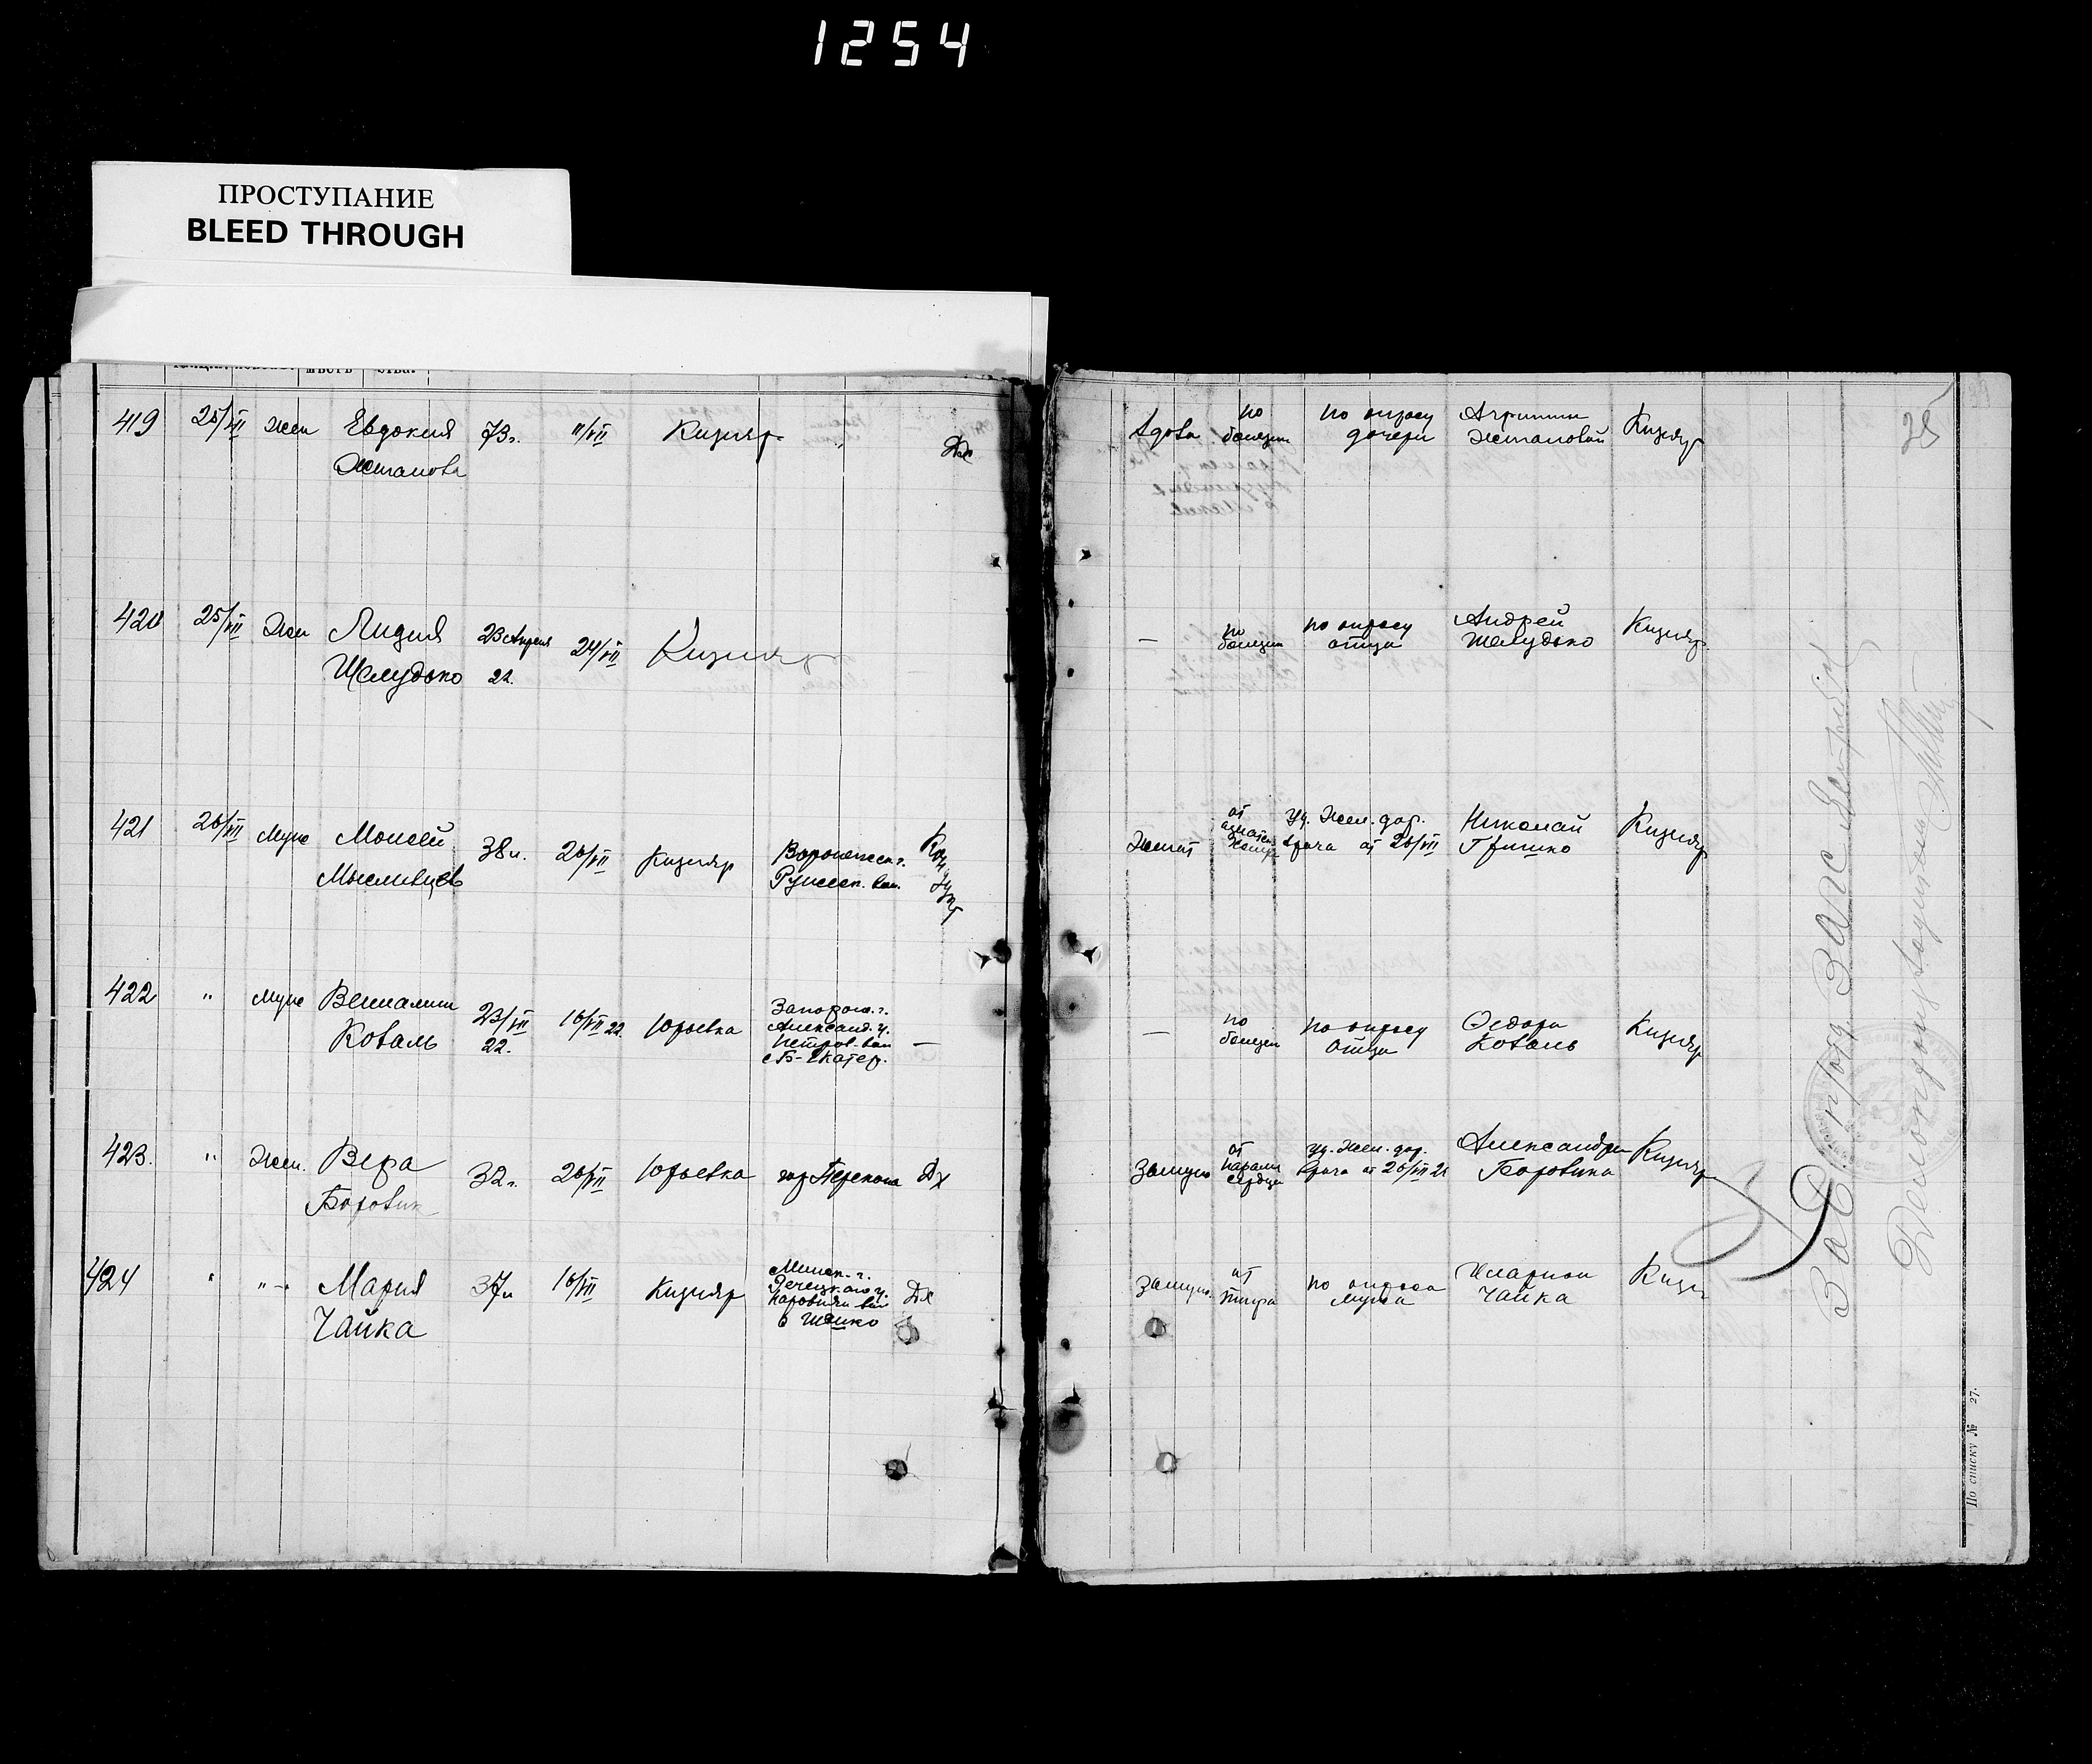 1254
ПРОСТУПАНИЕ
BLEED THROUGH
419 25/VII жен Евдокия 73 г. 11/VII Кизияр " Дх
Вдова по болезни по опросу дочери Кизияр
420 25/VII Жен Лидия Шелудько 23 Апреля 22. 24/VII Кизияр
— по болезни по опросу отца Андрей Шелудько Кизияр.
421 26/VII Муж Моисей Мысливцев 38 л. 26/VII Кизияр
Женат от Уд. Жел. дор. врача от 26/VII Николай Гришко Кизияр
422 " муж Вениамин Коваль 23/VII 22. 16/VII 22. Юрьевка Запорож. г. Александ. у. Петров. вол с Б-Екатер. —
— по болезни по опросу отца Федора Коваль Кизияр
423. " Жен. Вера Боровик 32 г. 26/VII Юрьевка гор Перекопа Дх
Замуж от парали сердца уд. Жел. дор. врача от 26/VII 22 Александра Боровика Кизияр
424 " " Мария Чайка 37 л 16/VII Кизияр Минск. г. Речецкаго у. вол Дх
Замуж. от тифа по опроса мужа Иларион Чайка
Зав. ЗАГС
Делопроизводитель
По списку № 27.